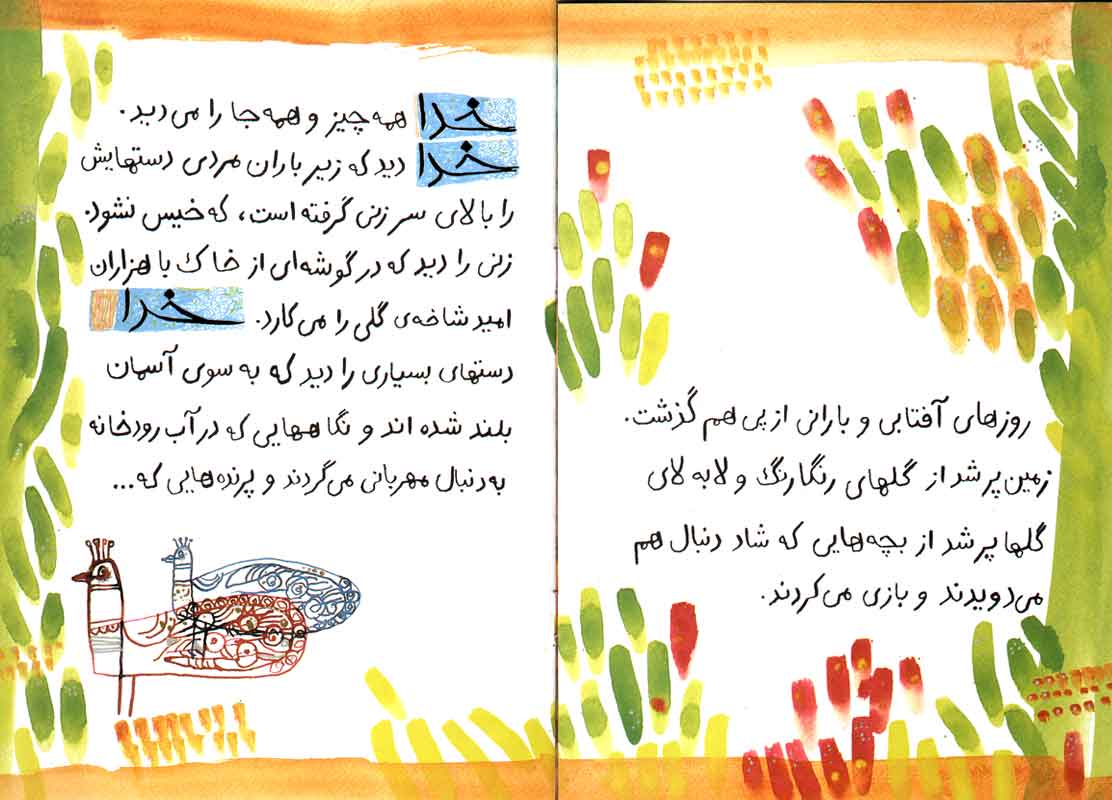 روزهای آفتابی و بارانی از پی هم گذشت.
زمین پر شد از گلهای رنگارنگ و لابه لای
گلها پر شد از بچه‌هایی که شاد دنبال هم
می‌دویدند و بازی می‌کردند.
خدا همه چیز و همه جا را می‌دید.
خدا دید که زیر باران مردی دستهایش
را بالای سر زنی گرفته است، که خیس نشود.
زنی را دید که در گوشه‌ای از خاک با هزاران
امید شاخه‌ی گلی را می‌کارد. خدا
دستهای بسیاری را دید که به سوی آسمان
بلند شده اند و نگاههایی که در آب رودخانه
به دنبال مهربانی می‌گردند و پرنده‌هایی که...